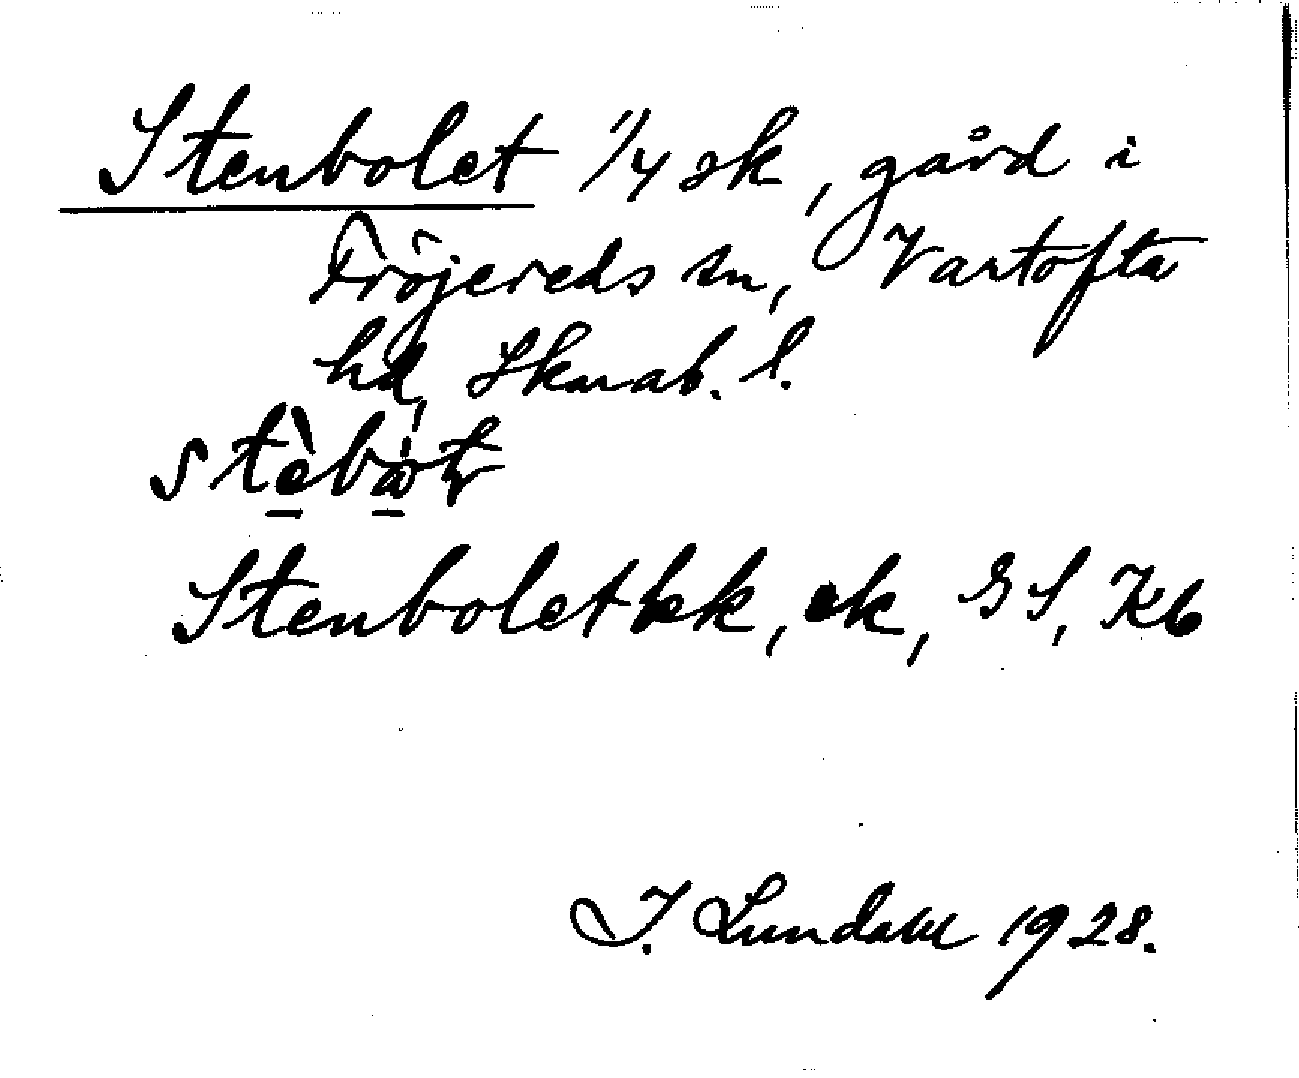 Stenbolet 1/4 sk, gård i
Fröjereds sn, Vartofta
hd, Skarab. l.
Stenbolet bk, ek, GS, Kb
J. Lundahl 1928.